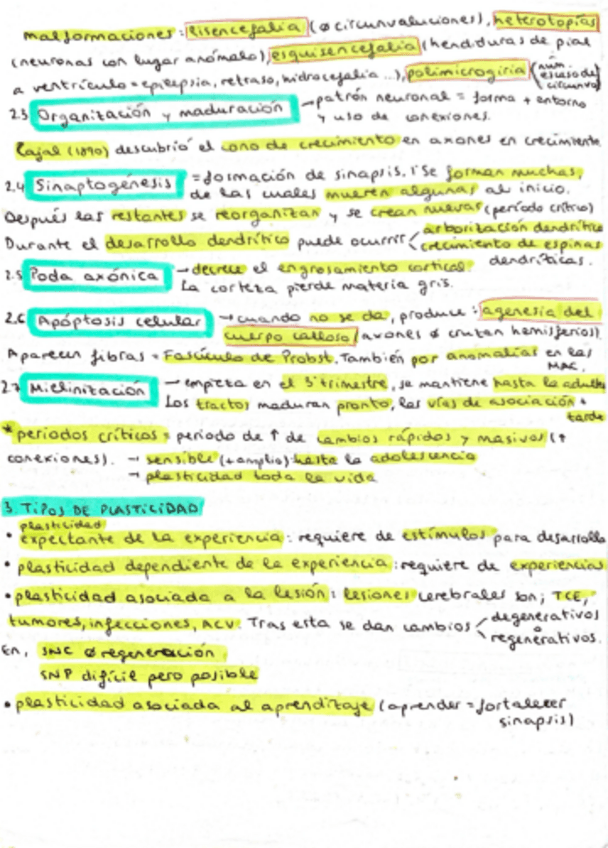 malformaciones: lisencefalia (∅ circunvoluciones), heterotopías
(neuronas con lugar anómalo), esquisencefalia (hendiduras de pial
a ventrículo = epilepsia, retraso, hidrocefalia ...), polimicrogiria (núm. escaso de circunvo
2.3 Organización y maduración → patrón neuronal = forma + entorno
y uso de conexiones.
Cajal (1890) descubrió el cono de crecimiento en axones en crecimiento
2.4 Sinaptogénesis = formación de sinapsis. Se forman muchas,
de las cuales mueren algunas al inicio.
Después las restantes se reorganizan y se crean nuevas (período crítico)
Durante el desarrollo dendrítico puede ocurrir < arborización dendrítica
crecimiento de espinas
dendríticas.
2.5 Poda axónica → decrece el engrosamiento cortical.
La corteza pierde materia gris.
2.6 Apóptosis celular → cuando no se da, produce: agenesia del
cuerpo calloso (axones ∅ cruzan hemisferios)
Aparecen fibras = Fascículo de Probst. También por anomalías en las
MAC.
2.7 Mielinización → empieza en el 3º trimestre, se mantiene hasta la adultez
Los tractos maduran pronto, las vías de asociación +
tarde
* periodos críticos = periodo de ↑ de cambios rápidos y masivos (↑
conexiones). → sensible (+ amplio): hasta la adolescencia
→ plasticidad toda la vida
3. TIPOS DE PLASTICIDAD
plasticidad
• expectante de la experiencia: requiere de estímulos para desarrollo
• plasticidad dependiente de la experiencia: requiere de experiencias
• plasticidad asociada a la lesión: lesiones cerebrales son; TCE,
tumores, infecciones, ACV. Tras esta se dan cambios < degenerativos
o
regenerativos.
En, SNC ∅ regeneración
SNP difícil pero posible
• plasticidad asociada al aprendizaje (aprender = fortalecer
sinapsis)